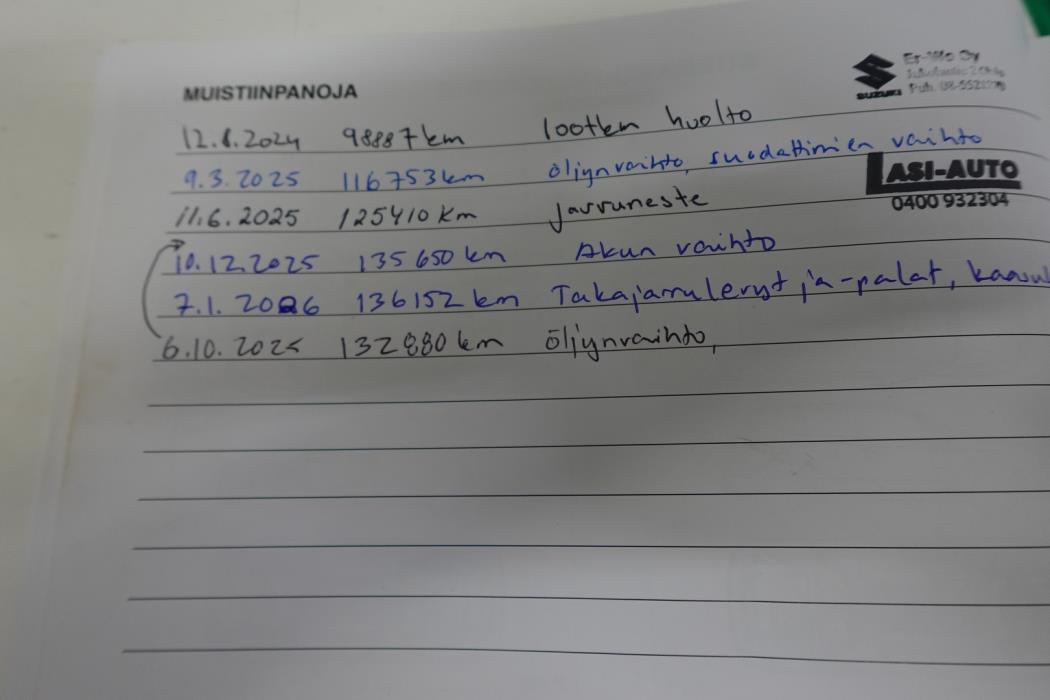 MUISTIINPANOJA
SUZUKI
12.6.2024 98887 km 100tkm huolto
9.3.2025 116753 km öljynvaihto, suodattimien vaihto
LASI-AUTO
0400 932304
11.6.2025 125410 km Jarruneste
10.12.2025 135650 km Akun vaihto
7.1.2026 136152 km Takajarrulevyt ja -palat,
6.10.2025 132880 km öljynvaihto,